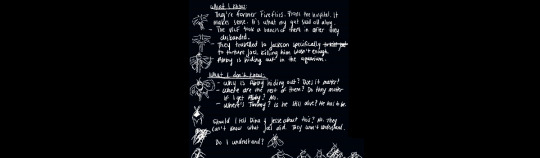 What I know:
- They're former Fireflies. From the hospital. It
makes sense. It's what my gut said all along.
- The WLF took a bunch of them in after they
disbanded.
- They travelled to Jackson specifically
to torture Joel. Killing him wasn't enough.
- Abby is hiding out in the aquarium.
What I don't know:
- Why is Abby hiding out? Does it matter?
- Where are the rest of them? Do they matter
if I get Abby? No.
- Where's Tommy? Is he still alive? He has to be.
Should I tell Dina & Jesse about this? No. They
can't know what Joel did. They won't understand.
Do I understand?